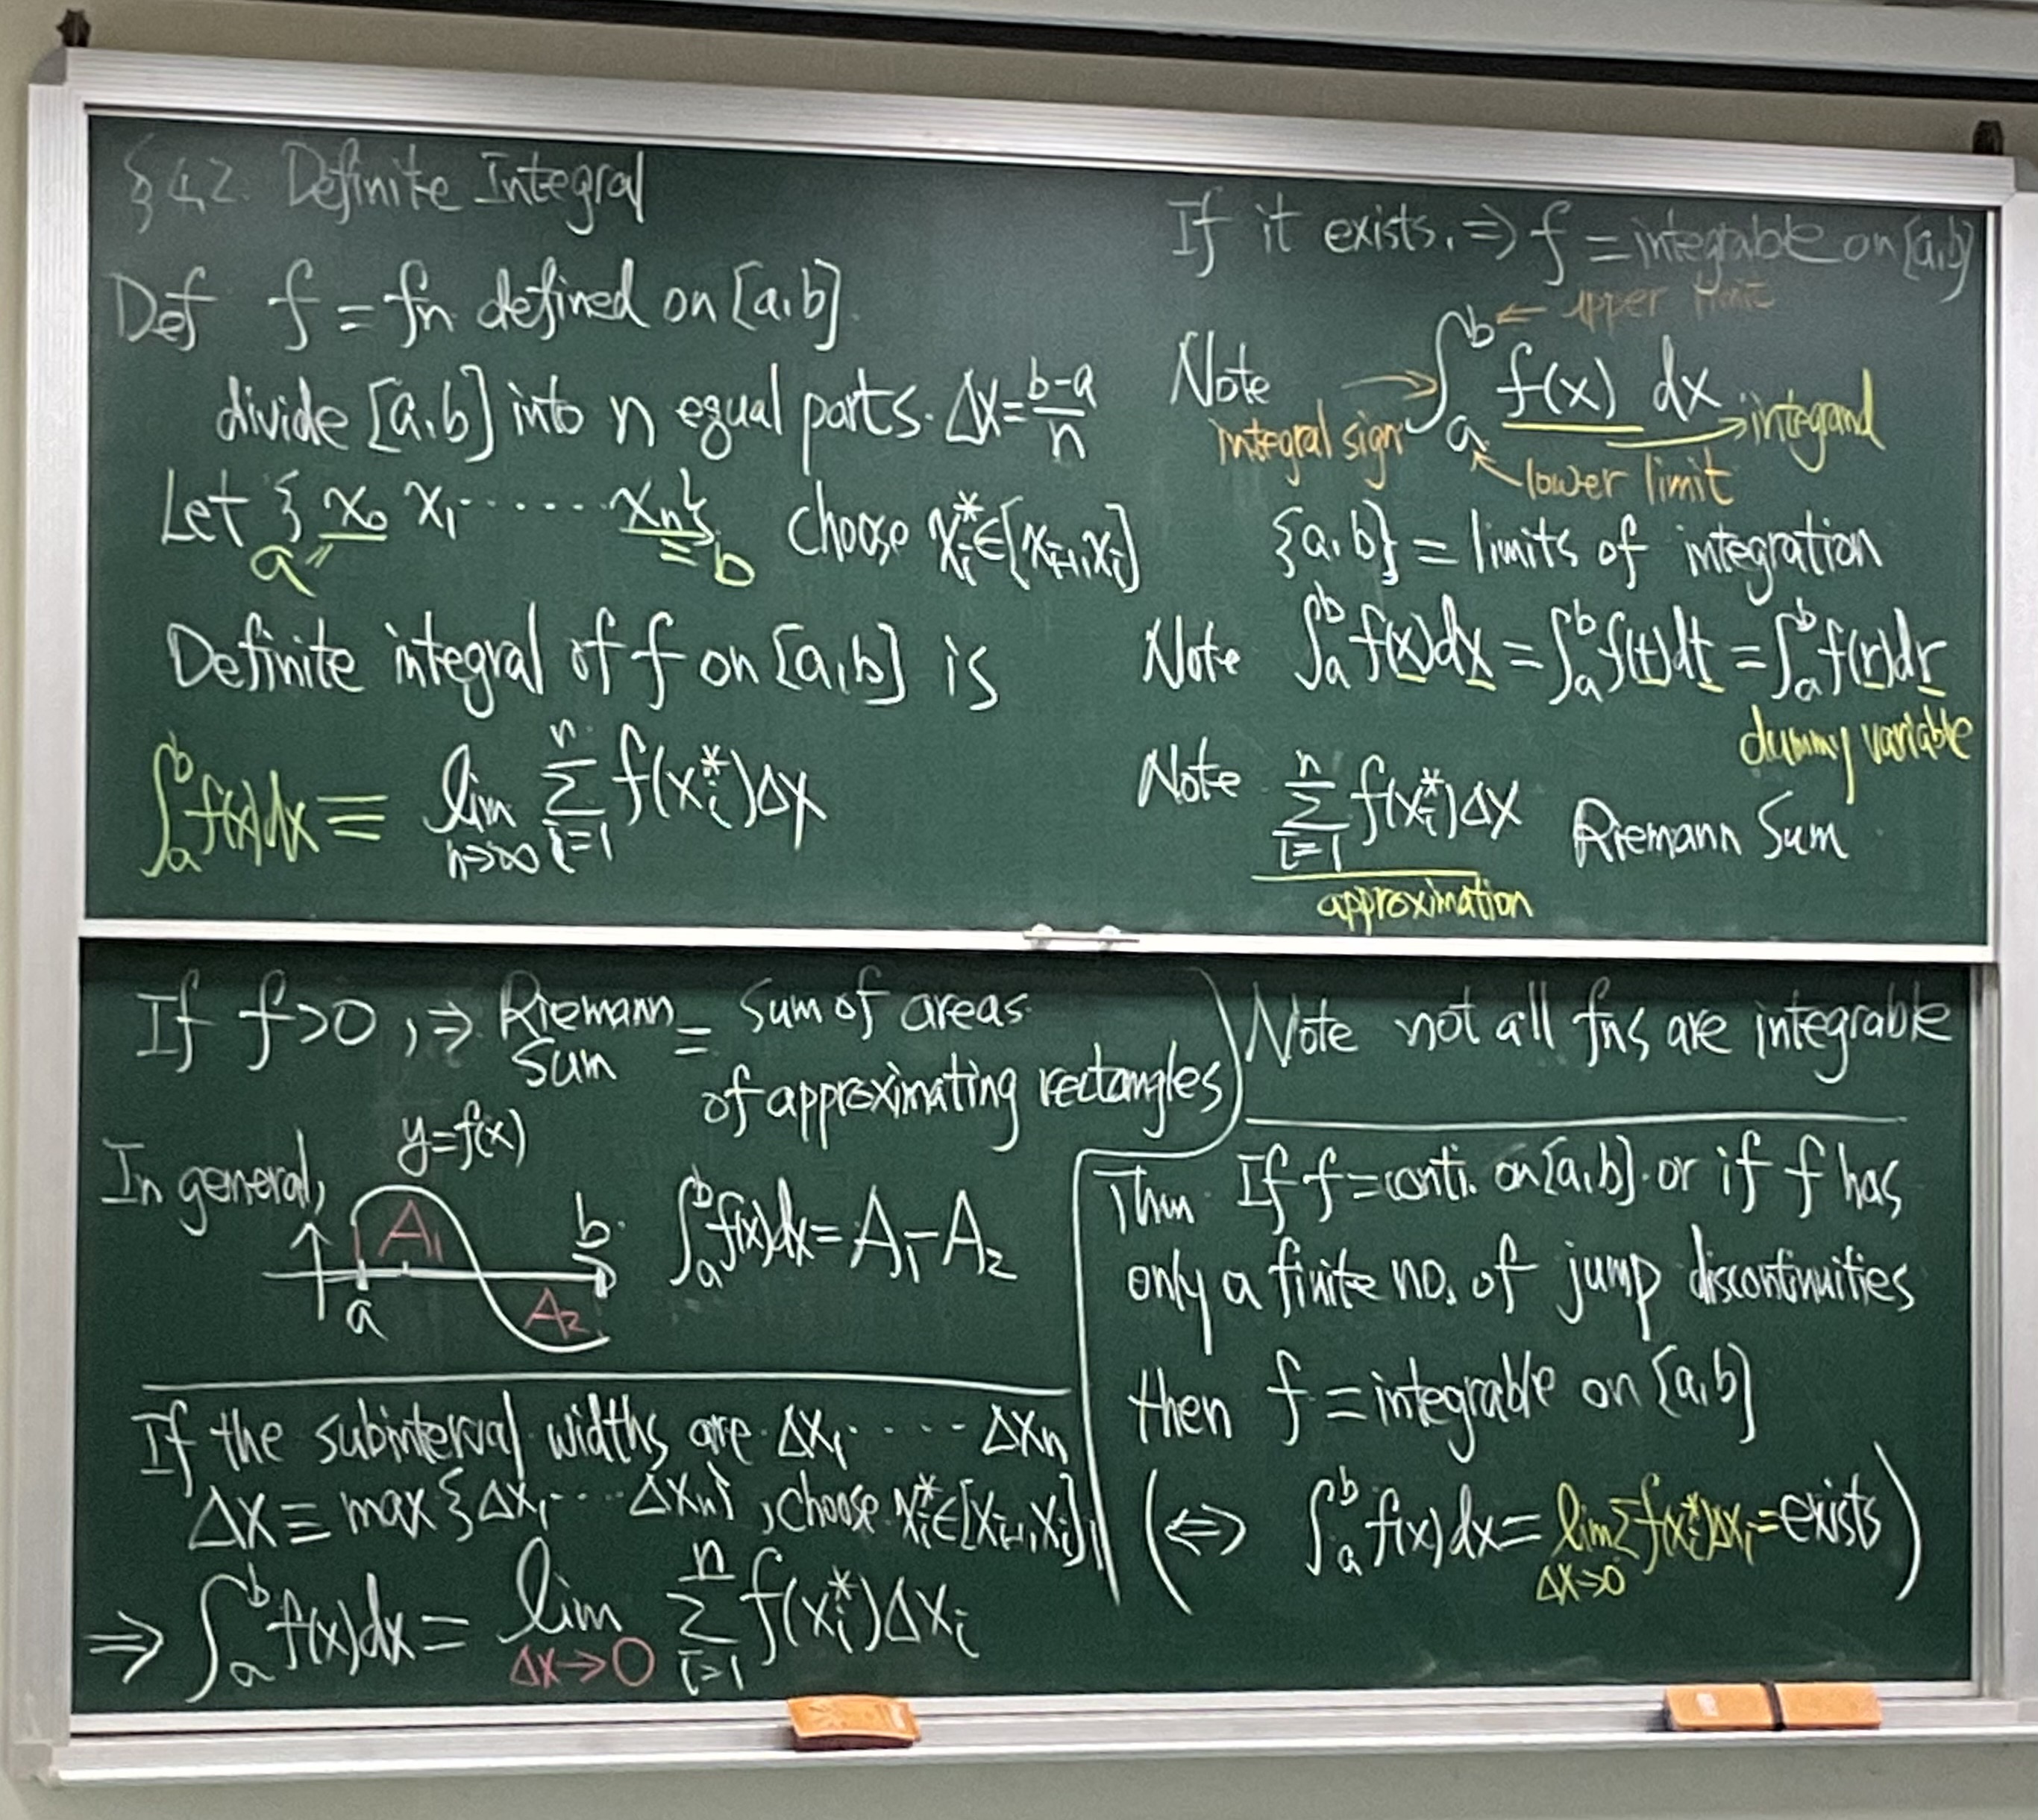 §4.2. Definite Integral
Def f = fn defined on [a,b].
divide [a,b] into n equal parts. Δx = (b-a)/n
Let {x₀ x₁ ...... xₙ} choose xᵢ* ∈ [xᵢ₋₁, xᵢ]
a = = b
Definite integral of f on [a,b] is
∫ₐᵇ f(x)dx ≡ lim n→∞ Σᵢ₌₁ⁿ f(xᵢ*)Δx
If it exists. ⇒ f = integrable on [a,b]
← upper limit
Note ∫ₐᵇ f(x) dx
integral sign → integrand
lower limit
{a,b} = limits of integration
Note ∫ₐᵇ f(x)dx = ∫ₐᵇ f(t)dt = ∫ₐᵇ f(r)dr
dummy variable
Note Σᵢ₌₁ⁿ f(xᵢ*)Δx Riemann Sum
approximation
If f>0, ⇒ Riemann Sum = Sum of areas
of approximating rectangles
In general, y=f(x)
A₁ b ∫ₐᵇ f(x)dx = A₁-A₂
a A₂
If the subinterval widths are Δx₁ .... Δxₙ
Δx ≡ max{Δx₁ ... Δxₙ}, choose xᵢ* ∈ [xᵢ₋₁, xᵢ],
⇒ ∫ₐᵇ f(x)dx = lim Δx→0 Σᵢ₌₁ⁿ f(xᵢ*)Δxᵢ
Note not all fns are integrable
Thm If f = conti. on [a,b]. or if f has
only a finite no. of jump discontinuities
then f = integrable on [a,b]
(⇔ ∫ₐᵇ f(x)dx = lim Δx→0 Σ f(xᵢ*)Δxᵢ = exists)